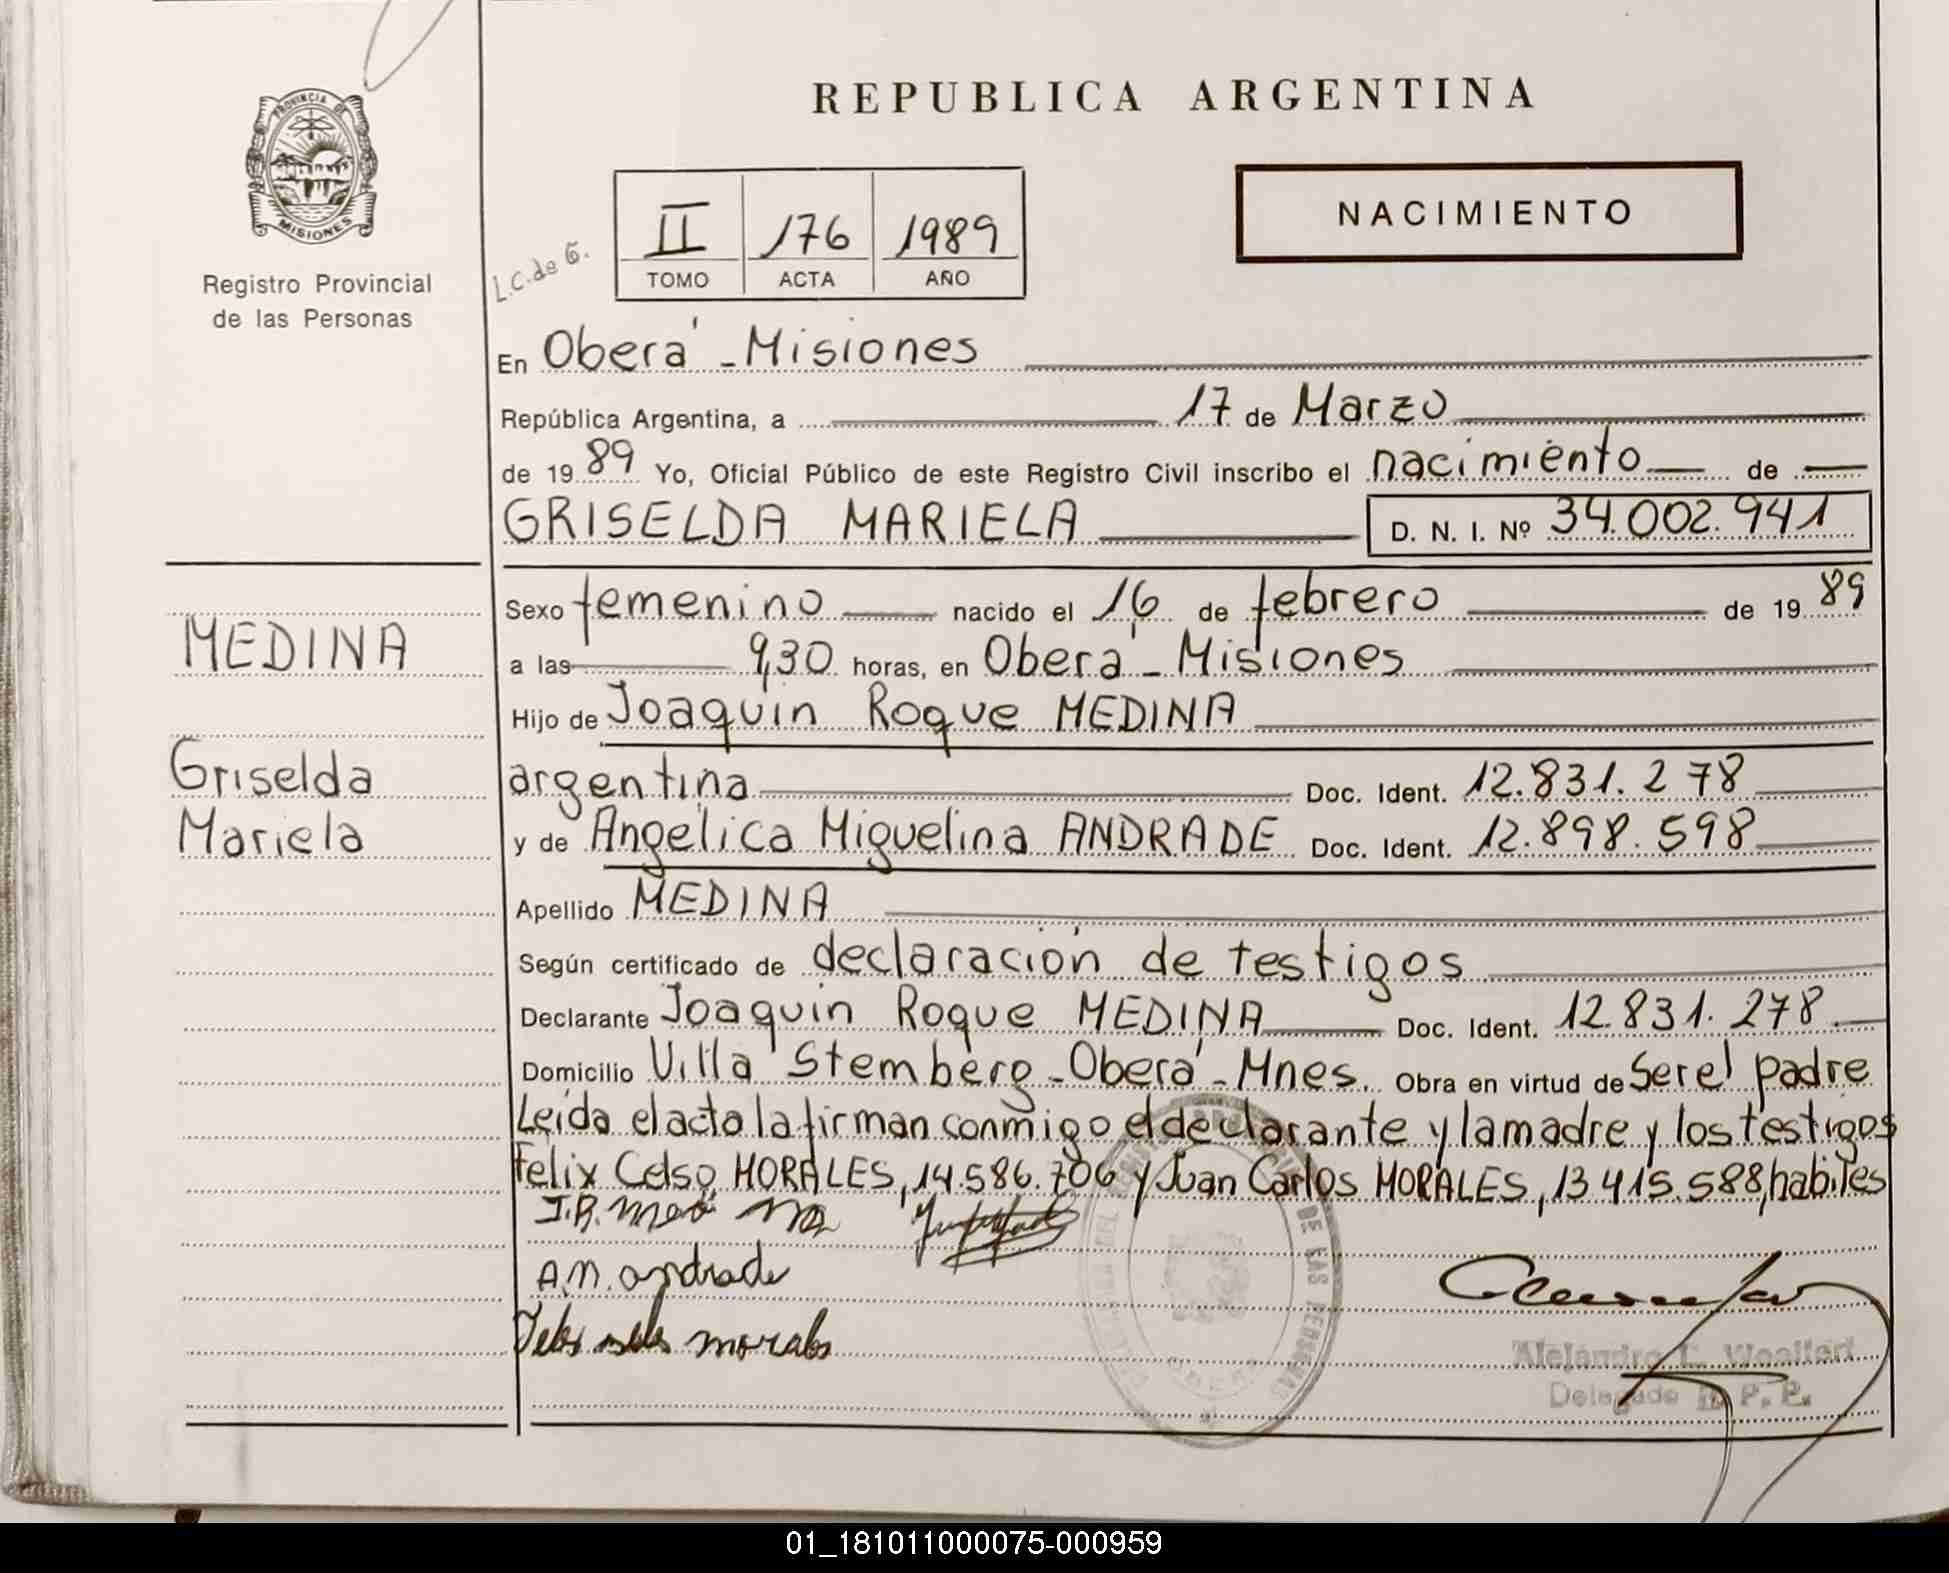 REPUBLICA ARGENTINA
PROVINCIA DE
MISIONES
Registro Provincial
de las Personas
L.C. de G.
II 176 1989
TOMO ACTA AÑO
NACIMIENTO
En Oberá - Misiones
República Argentina, a 17 de Marzo
de 19 89 Yo, Oficial Público de este Registro Civil inscribo el nacimiento de
GRISELDA MARIELA D. N. I. Nº 34.002.941
MEDINA
Griselda
Mariela
Sexo femenino nacido el 16 de febrero de 19 89
a las 9,30 horas, en Oberá - Misiones
Hijo de Joaquín Roque MEDINA
argentina Doc. Ident. 12.831.278
y de Angélica Miguelina ANDRADE Doc. Ident. 12.898.598
Apellido MEDINA
Según certificado de declaración de testigos
Declarante Joaquín Roque MEDINA Doc. Ident. 12.831.278.
Domicilio Villa Stemberg - Oberá - Mnes. Obra en virtud de Ser el padre
Leída el acto la firman conmigo el declarante y la madre y los testigos
Felix Celso MORALES, 14.586.706 y Juan Carlos MORALES, 13.415.588, habiles
A.M. andrade
morales
DE LAS PERSONAS
Delegado R. P. P.
01_181011000075-000959